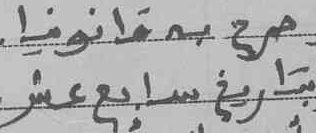 صرح به قانونيا
بتاريخ سابع عشر